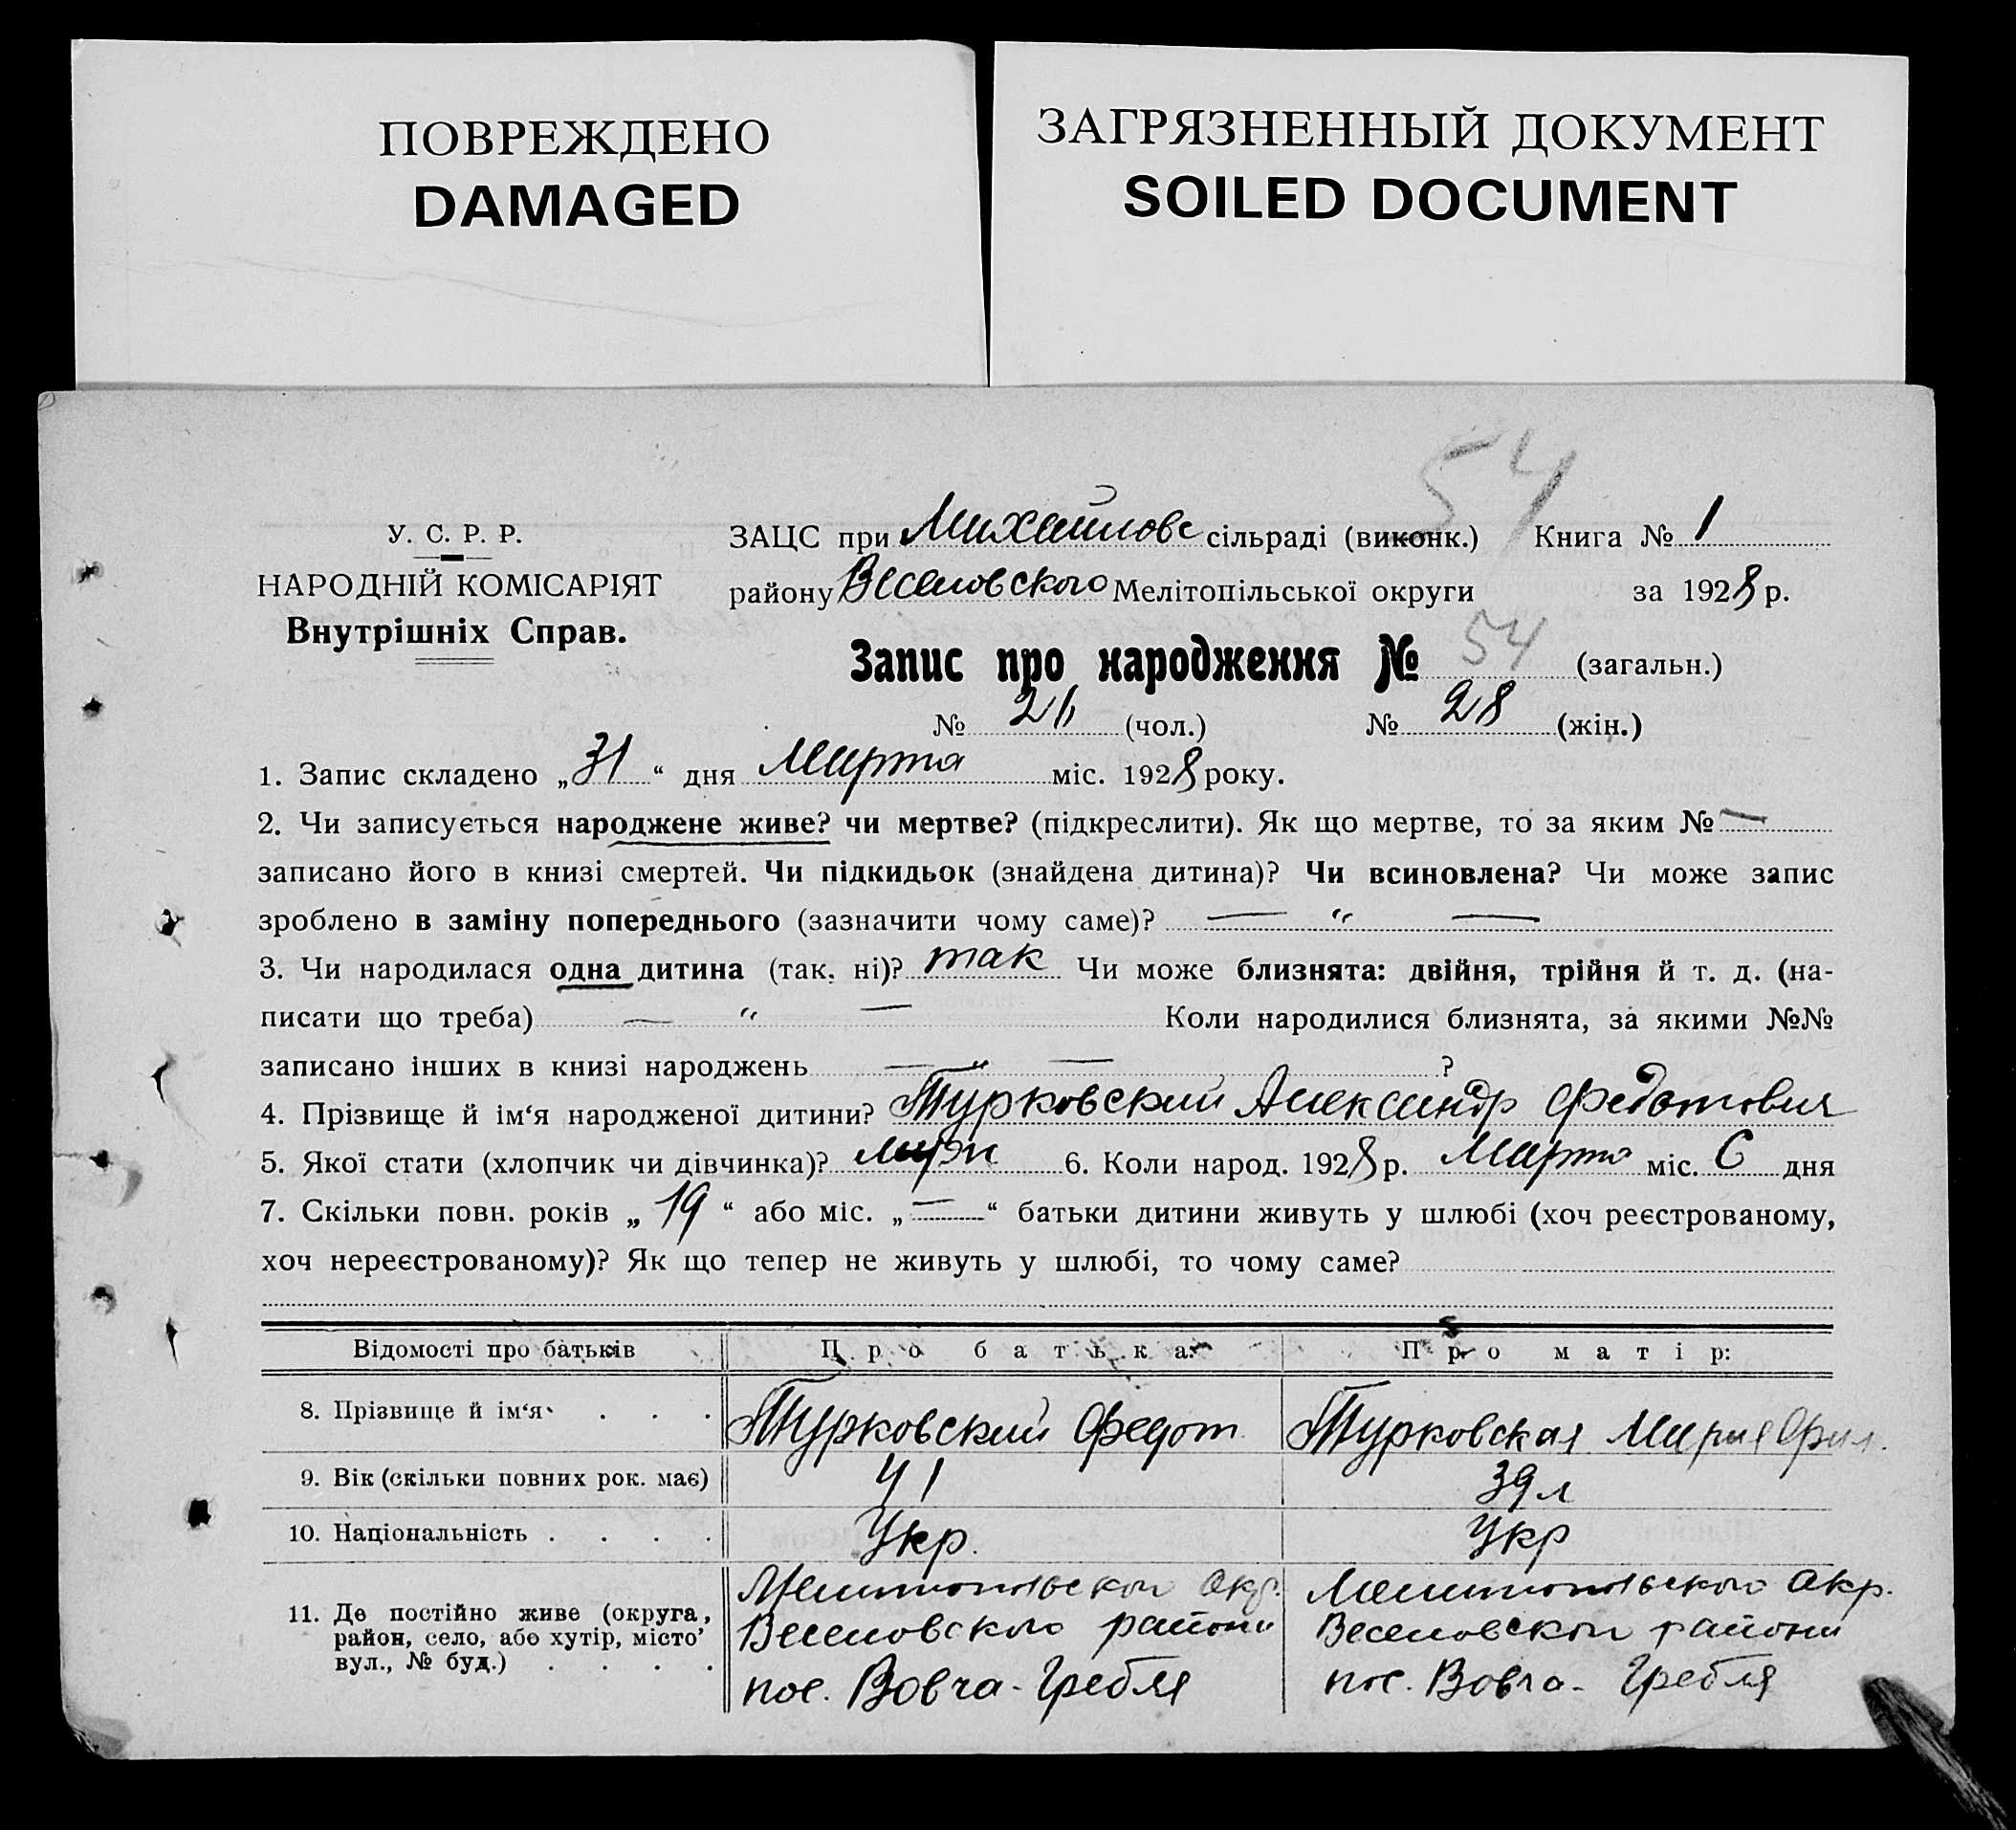 ПОВРЕЖДЕНО
DAMAGED
ЗАГРЯЗНЕННЫЙ ДОКУМЕНТ
SOILED DOCUMENT
54
У. С. Р. Р.
НАРОДНІЙ КОМІСАРІЯТ
Внутрішніх Справ.
ЗАЦС при Михайловс сільраді (виконк.) Книга № 1
району Веселовского Мелітопільської округи за 1928 р.
Запис про народження № 54 (загальн.)
№ 26 (чол.) № 28 (жін.)
1. Запис складено „31“ дня Марта міс. 1928 року.
2. Чи записується народжене живе? чи мертве? (підкреслити). Як що мертве, то за яким № —
записано його в книзі смертей. Чи підкидьок (знайдена дитина)? Чи всиновлена? Чи може запис
зроблено в заміну попереднього (зазначити чому саме)? — “ —
3. Чи народилася одна дитина (так, ні)? так Чи може близнята: двійня, трійня й т. д. (на-
писати що треба) — “ — Коли народилися близнята, за якими №№
записано інших в книзі народжень — “ — ?
4. Прізвище й ім‘я народженої дитини? Турковский Александр Федотович
5. Якої стати (хлопчик чи дівчинка)? 6. Коли народ. 1928 р. Марта міс. 6 дня
7. Скільки повн. років „19“ або міс. „—“ батьки дитини живуть у шлюбі (хоч реєстрованому,
хоч нереєстрованому)? Як що тепер не живуть у шлюбі, то чому саме?
Відомості про батьків Про батька: Про матір:
8. Прізвище й ім‘я . . . Турковский Федот Турковская Мария
9. Вік (скільки повних рок. має) 41 39 л
10. Національність . . . . Укр. Укр
11. Де постійно живе (округа, район, село, або хутір, місто’ вул., № буд.) . . . .
Мелитопольской Окр.
Веселовского района
пос. Вовча-Гребля
Мелитопольской Окр.
Веселовского района
пос. Вовча-Гребля